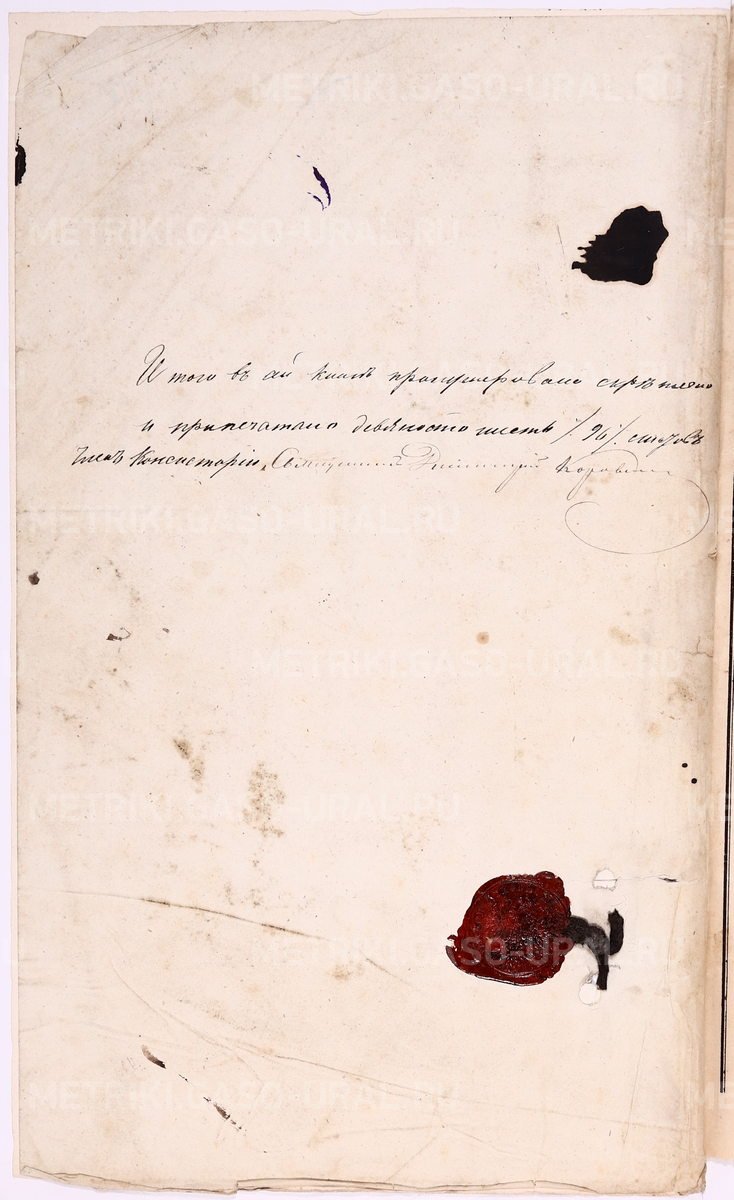 METRIKI.GASO-URAL.RU
METRIKI.GASO-URAL.RU
Итого въ ей книгѣ пронумеровано скрѣплено
и припечатано девяносто шесть /. 96 /. листовъ
Членъ Консисторіи, Священникъ Димитрій
METRIKI.GASO-URAL.RU
METRIKI.GASO-URAL.RU
METRIKI.GASO-URAL.RU
METRIKI.GASO-URAL.RU
METRIKI.GASO-URAL.RU